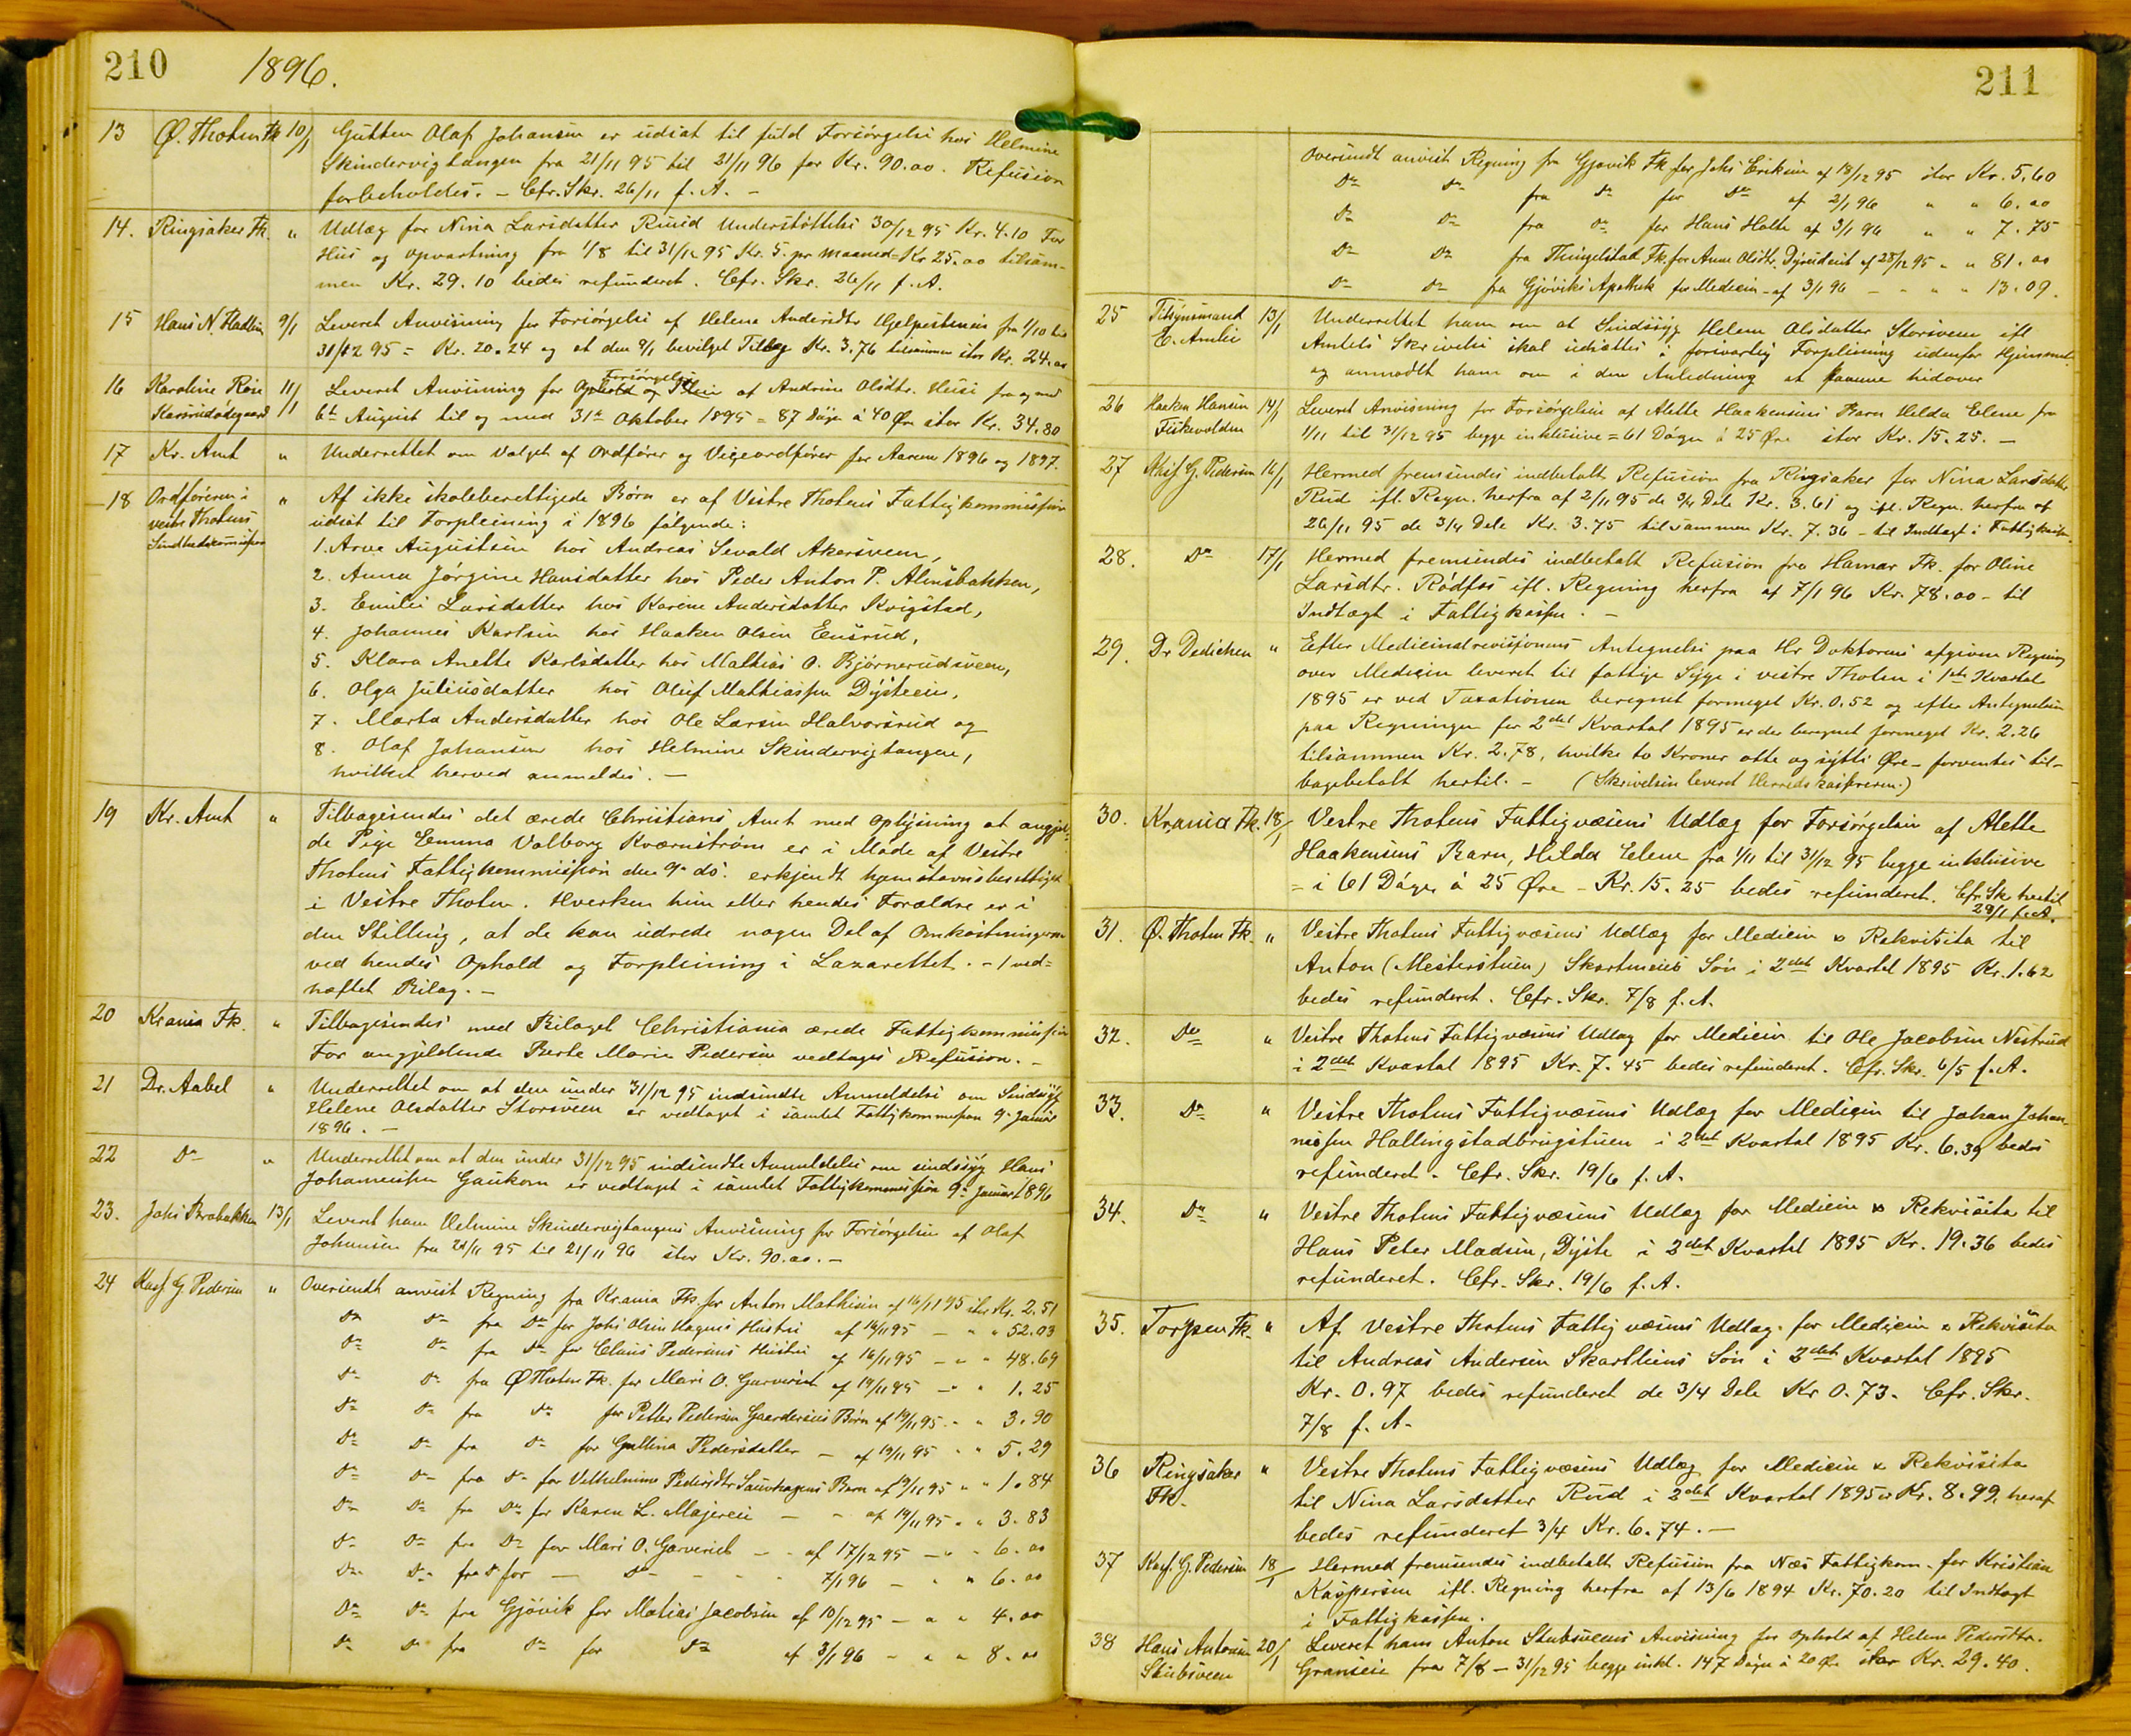 210 1896.
13 Ø. Thoten Fk 10/1 Gutten Olaf Johansen er udsat til fuld Forsørgelse hos Helmine
Skindervigtangen fra 21/11 95 til 21/11 96 for Kr. 90.00. Refusion
forbeholdes. – Cfr. Skr. 26/11 f. A. –
14. Ringsaker Fk. " Udlæg for Nina Larsdatter Ruud Understøttelse 30/12 95 Kr. 4.10 For
Hus og opvartning fra 1/8 til 31/12 95 Kr. 5. pr Maaned = Kr 25.00 tilsam-
men Kr. 29.10 bedes refunderet. Cfr. Skr. 26/11 f. A.
15 Hans N. 9/1 Leveret Anvisning for Forsørgelse af Helene Andersdtr fra 1/10 til
31/12 95 = Kr. 20.24 og et den 9/1 bevilget Tillæg Kr. 3.76 tilsammen stor Kr. 24.00
16 Karoline 11/1 Leveret Anvisning for Forsørgelse af Andrine Olsdtr. fra og med
6te August til og med 31te Oktober 1895 = 87 Døgn á 40 Øre stor Kr. 34.80
17 Kr. Amt " Underrettet om Valget af Ordfører og Viceordfører for Aarene 1896 og 1897.
18 Ordføreren i
vestre Thotens
Sundhedskommission " Af ikke skoleberettigede Børn er af Vestre Thotens Fattigkommission
udsat til Forpleining i 1896 følgende:
1. Arve Augustsen hos Andreas Sevald Akersveen,
2. Anna Jørgine Hansdatter hos Peder Anton P. Alensbakken,
3. Emilie Larsdatter hos Karine Andersdatter Kvigstad,
4. Johannes Karlsen hos Haaken Olsen Eensrud,
5. Klara Anette Karlsdatter hos Mathias O. Bjørnerudsveen,
6. Olga Juliusdatter hos Oluf Mathiassen Dysteeie,
7. Marta Andersdatter hos Ole Larsen Halvorsrud og
8. Olaf Johansen hos Helmine Skindervigtangen,
hvilket herved anmeldes. –
19 Kr. Amt " Tilbagesendes det ærede Christians Amt med Oplysning at angjel-
de Pige Emma Valborg Kværnstrøm er i Møde af Vestre
Thotens Fattigkommission den 9de ds. erkjendt hjemstavnsberettiget
i Vestre Thoten. Hverken hun eller hendes Forældre er i
den Stilling, at de kan udrede nogen Del af Omkostningerne
ved hendes Ophold og Forpleining i Lazarettet. – 1 ved-
hæftet Bilag. –
20 Krania Fk. " Tilbagesendes med Bilaget Christiania ærede Fattigkommission
For angjeldende Berte Marie Pedersen vedtages Refusion. –
21 Dr. Aabel " Underrettet om at den under 31/12 95 indsendte Anmeldelse om Sindssyg
Helene Olsdatter Storsveen er vedtaget i samlet Fattigkommission 9de Januar
1896. –
22 Do " Underrettet om at den under 31/12 95 indsendte Anmeldelse om sindssyg Hans
Johannessen Gaukom er vedtaget i samlet Fattigkommission 9de Januar 1896
23. Johs Brobakken 13/1 Leveret ham Helmine Skindervigtangens Anvisning for Forsørgelse af Olaf
Johansen fra 21/11 95 til 21/11 96 stor Kr. 90.00. –
24 Kasf. G Pedersen " Oversendt anvist Regning fra Krania Fk. for Anton Mathisen af 16/11 95 stor Kr. 2.51
Do Do fra Do for Johs Olsen Hagens Hustru af 16/11 95 – " " 52.03
Do Do fra Do for Claus Pedersens Hustru af 16/11 95 – " " 48.69
Do Do fra Ø Thoten Fk. for Mari O. Garveriet af 19/11 95 – " " 1.25
Do Do fra Do for Petter Pedersen Børn af 19/11 95 – " " 3.90
Do Do fra Do for Gullina Pedersdatter – af 19/11 95 " " 5.29
Do Do fra Do for Vilhelmine Pedersdtr Barn af 19/11 95 " " 1.84
Do Do fra Do for Karen L. Majereie – – af 19/11 95 " " 3.83
Do Do fra Do for Mari O. Garveriet – – af 17/12 95 – " " 6.00
Do Do fra Do for – Do – – – 7/1 96 – " " 6.00
Do Do fra Gjøvik for Matias Jacobsen af 10/12 95 – " " 4.00
Do Do fra Do for Do af 3/1 96 – " " 8.00
211
Oversendt anvist Regning fra Gjøvik Fk for Johs Eriksen af 18/12 95 stor Kr. 5.60
Do Do fra Do for Do af 2/1 96 " " 6.00
Do Do fra Do for Hans Holte af 3/1 96 " " 7.75
Do Do fra Fk for Anne Olsdtr. af 28/12 95 " " 81.00
Do Do fra Gjøviks Apothek for Medicin – af 3/1 96 – " " 13.09.
25 Tilsynsmand
E. Amlie 13/1 Underrettet ham om at Sindssyg Helene Olsdatter Storsveen ifl
Amtets Skrivelse skal udsættes i forsvarlig Forpleining udenfor Hjemmet
og anmodet ham om i den Anledning at komme hidover
26 Haaken Hansen
Fiskevolden 14/1 Leveret Anvisning for Forsørgelse af Alette Haakensens Barn Hilda Elene fra
1/11 til 31/12 95 begge inklusive = 61 Døgn á 25 Øre stor Kr. 15.25. –
27 Kasf. G. Pedersen 16/1 Hermed fremsendes indbetalt Refusion fra Ringsaker for Nina Larsdatter
Rud ifl. Regn. herfra af 2/11 95 de 3/4 Dele Kr. 3.61 og ifl. Regn. herfra af
26/11 95 de 3/4 Dele Kr. 3.75 tilsammen Kr. 7.36 – til Indtægt i Fattigkassen.
28. Do 17/1 Hermed fremsendes indbetalt Refusion fra Hamar Fk. for Oline
Larsdtr. Rødfos ifl. Regning herfra af 7/1 96 Kr. 78.00 – til
Indtægt i Fattigkassen. –
29. Dr Dedichen " Efter Medicinalrevisjonens Antegnelse paa Hr Doktorens afgivne Regning
over Medicin leveret til fattige Syge i vestre Thoten i 1ste Kvartal
1895 er ved Taxationen beregnet formeget Kr. 0.52 og efter Antegnelsen
paa Regningen for 2det Kvartal 1895 er der beregnet formeget Kr. 2.26
tilsammen Kr. 2.78, hvilke to Kroner otte og sytti Øre – forventes til-
bagebetalt hertil. – (Skrivelsen leveret Herredskassereren.)
30. Krania Fk. 18/1 Vestre Thotens Fattigvæsens Udlæg for Forsørgelse af Alette
Haakensens Barn, Hilda Elene fra 1/11 til 31/12 95 begge inklusive
= i 61 Døgn á 25 Øre – Kr. 15.25 bedes refunderet. Cfr. Sk. hertil
29/1 f. A.
31. Ø. Thoten Fk. " Vestre Thotens Fattigvæsens Udlæg for Medicin & Rekvisita til
Anton (Mesterstuen) Søn i 2det Kvartal 1895 Kr. 1.62
bedes refunderet. Cfr. Skr. 7/8 f. A.
32. Do " Vestre Thotens Fattigvæsens Udlæg for Medicin til Ole Jacobsen Nistrud
i 2det Kvartal 1895 Kr. 7.45 bedes refunderet. Cfr. Skr. 6/5 f. A.
33. Do " Vestre Thotens Fattigvæsens Udlæg for Medicin til Johan Johan-
nessen Hallingstadbrugstuen i 2det Kvartal 1895 Kr. 6.39 bedes
refunderet. Cfr. Skr. 19/6 f. A.
34. Do " Vestre Thotens Fattigvæsens Udlæg for Medicin & Rekvisita til
Hans Peter Madsen, Dyste i 2det Kvartal 1895 Kr. 19.36 bedes
refunderet. Cfr. Skr. 19/6 f. A.
35. Torpen Fk. " Af Vestre Thotens Fattigvæsens Udlæg for Medicin & Rekvisita
til Andreas Andersen Skartliens Søn i 2det Kvartal 1895
Kr. 0.97 bedes refunderet de 3/4 Dele Kr 0.73. Cfr. Skr.
7/8 f. A.
36 Ringsaker
Fk. " Vestre Thotens Fattigvæsens Udlæg for Medicin & Rekvisita
til Nina Larsdatter Rud i 2det Kvartal 1895 er Kr. 8.99, heraf
bedes refunderet 3/4 Kr. 6.74. –
37 Kasf. G. Pedersen 18/1 Hermed fremsendes indbetalt Refusion fra Næs Fattigkom. for Kristian
Kaspersen ifl. Regning herfra af 13/6 1894 Kr. 70.20 til Indtægt
i Fattigkassen.
38 Hans Antonsen
Stubsveen 20/1 Leveret ham Anton Stubsveens Anvisning for Ophold af Helene Pedersdtr.
Granseie fra 7/8 – 31/12 95 begge inkl. 147 Døgn á 20 Øre stor Kr. 29.40.